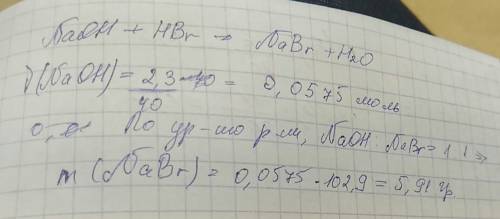 NaOH + HBr → NaBr + H2O
ν(NaOH) = 2,3 / 40 = 0,0575 моль
По ур-ию р-ии, NaOH : NaBr = 1:1 =>
m (NaBr) = 0,0575 · 102,9 = 5,91 гр.